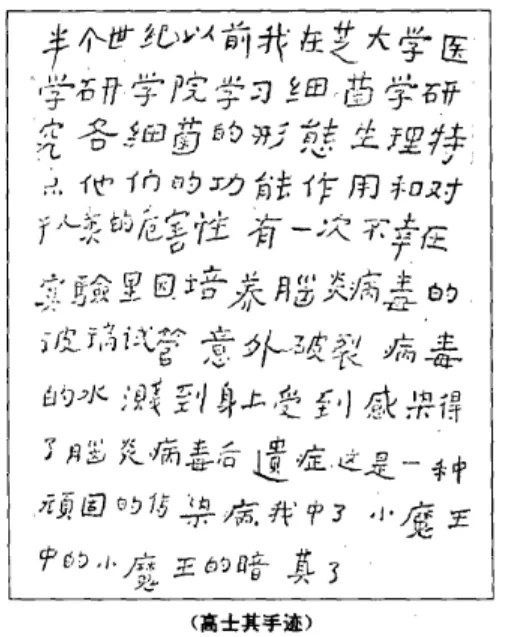 半个世纪以前我在芝大学医
学研学院学习细菌学研
究各細菌的形態生理特
点他们的功能作用和对
于人类的危害性有一次不幸在
实驗里因培养腦炎病毒的
玻璃试管意外破裂病毒
的水濺到身上受到感染得
了腦炎病毒后遺症.这是一种
頑固的传染病.我中了小魔王
中的小魔王的暗算了
(高士其手迹)